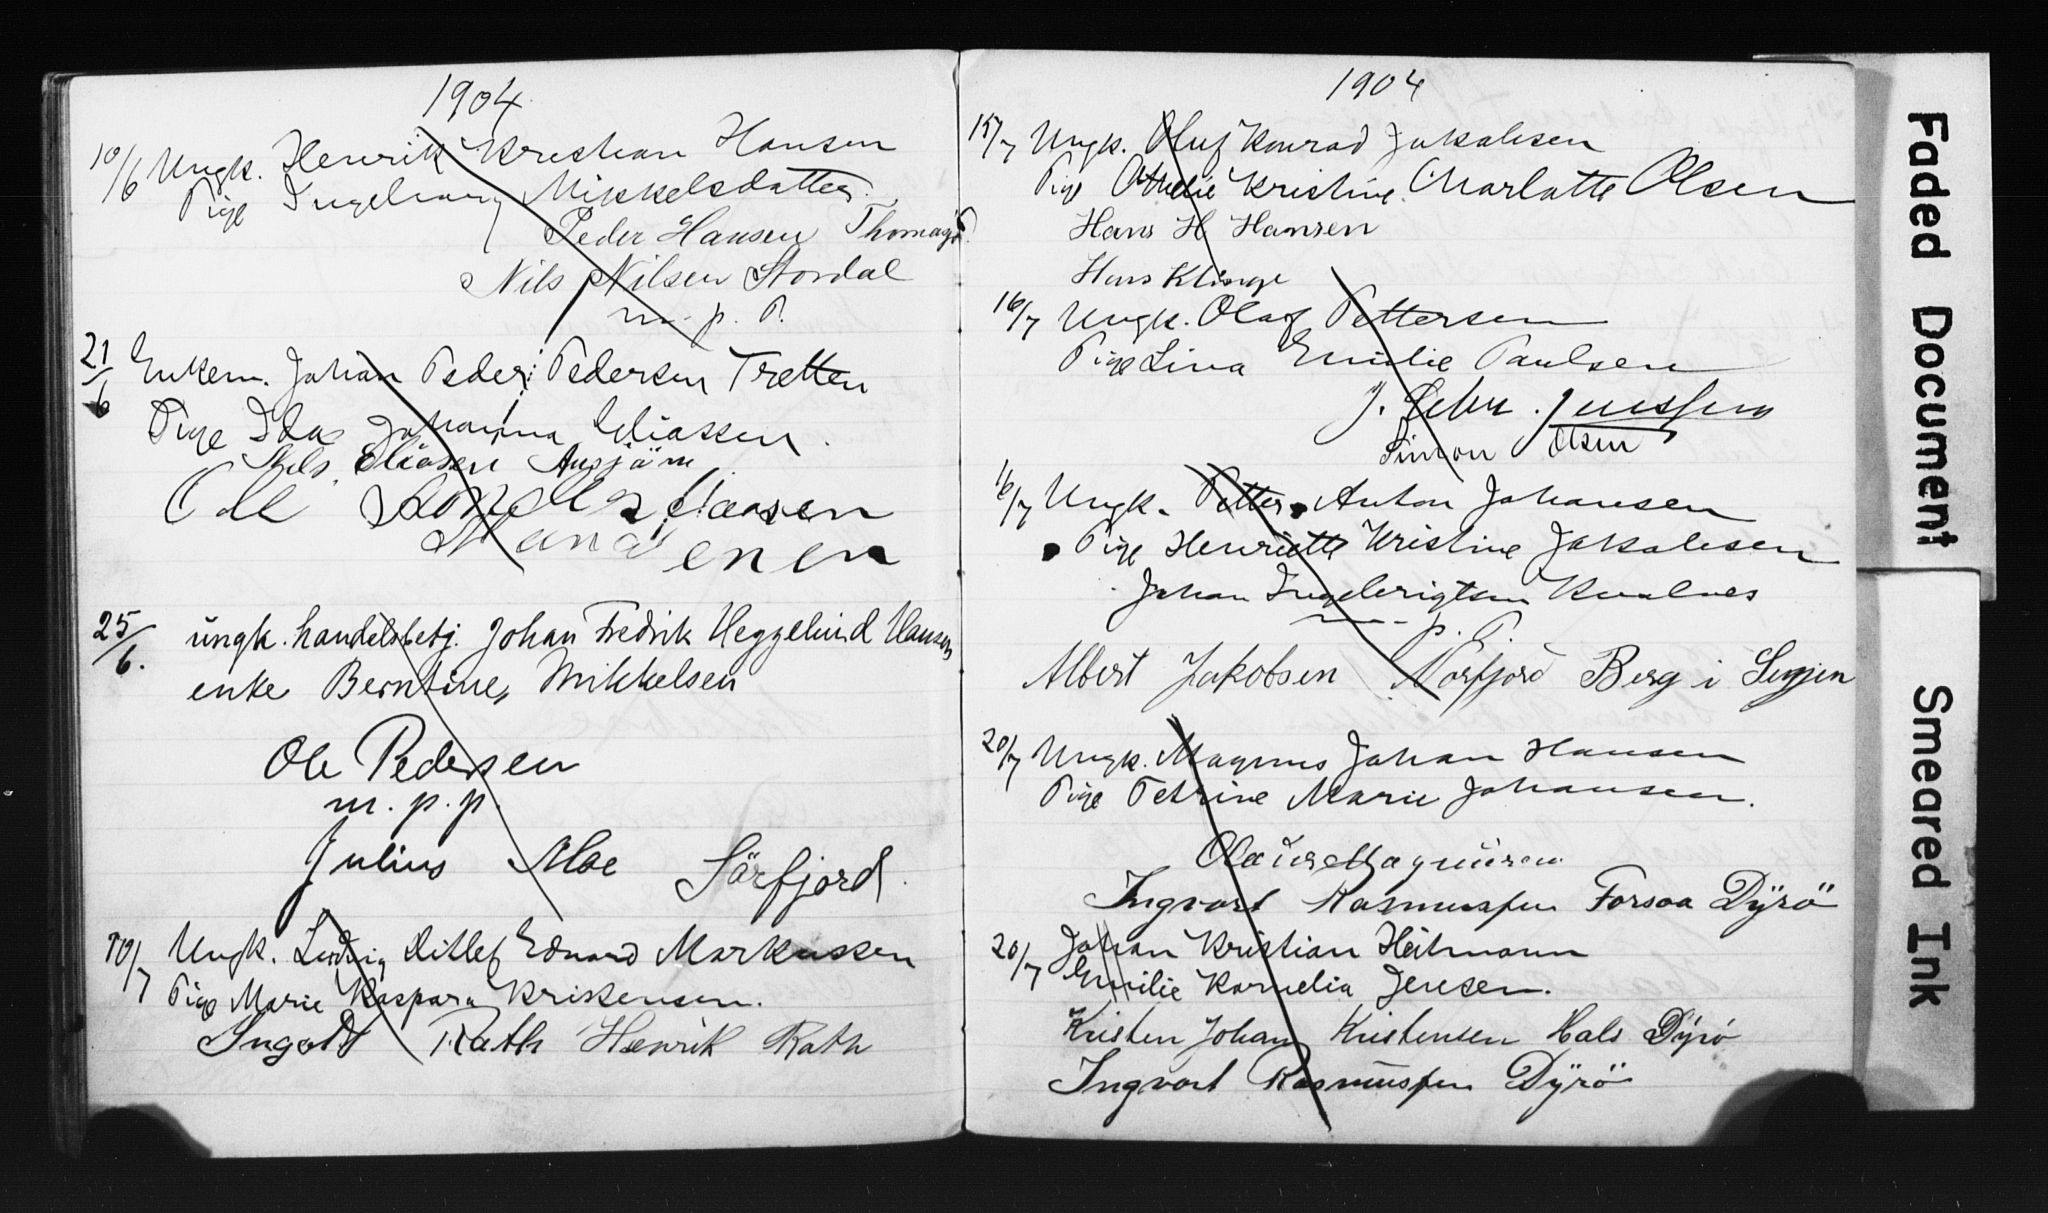 1904
10/6 Ungk. Henrik Kristian Hansen
Pige Ingeborg Mikkelsdatter.
Peder Hansen
Nils Nilsen Stordal
m. p. P.
21/6 Enkem. Johan Peder Pedersen Tretten
Pige Ida Johanna Eliassen.
Nils Eliasen
Ole
25/6. ungk. handelsbetj. Johan Fredrik Heggelund Hansen
enke Berntine Mikkelsen
Ole Pedersen
m. p. p.
Julius Moe Sörfjord.
10/7 Ungk. Ludvig Ditlef Edvard Markussen
Pige Marie Kaspara Kristensen.
Ingolf Rath Henrik Rath
1904
15/7 Ungk. Oluf Konrad Jakobsen
Pige Othelie Kristine Charlotte Olsen
Hans H Hansen
Hans Klinge
16/7 Ungk. Olaf Pettersen
Pige Lina Emilie Paulsen
J. Jenssen
Simon Olsen
16/7 Ungk. Petter Anton Johansen
Pige Henriette Kristine Jakobsen
Johan Ingebrigtsen Kvalnes
m. p. P.
Albert Jakobsen Norfjord Berg i Senjen
20/7 Ungk. Magnus Johan Hansen
Pige Petrine Marie Johansen.
Olaus Magnusen
Ingvart Rasmussen Forsaa Dÿrö
20/7 Johan Kristian Heitmann
Emilie Kornelia Jensen.
Kristen Johan Kristensen Hals Dÿrö
Ingvart Rasmussen Dÿrö
Faded Document
Smeared Ink